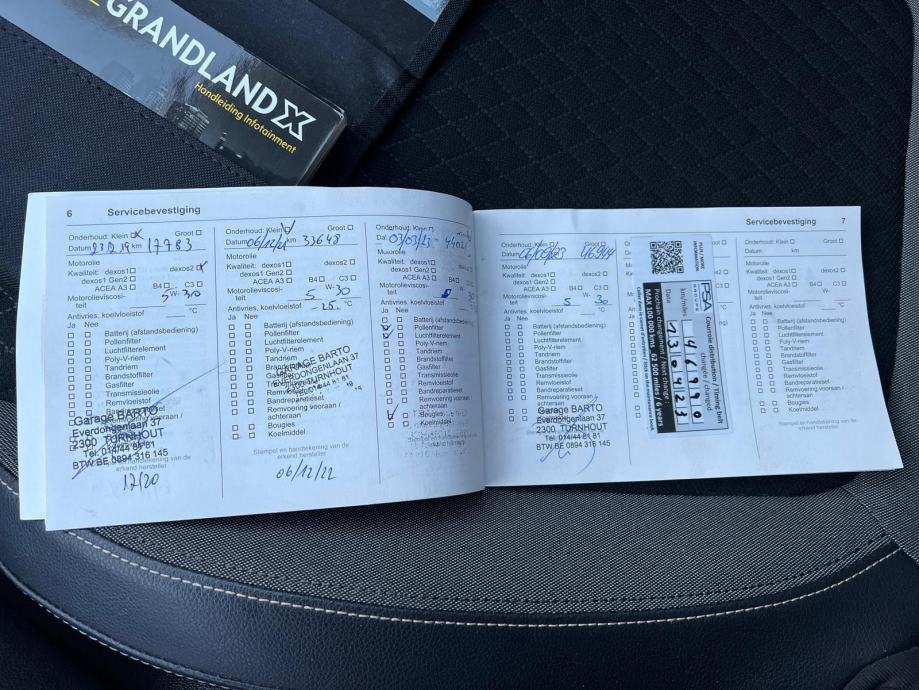 GRANDLAND X
Handleiding Infotainment
6 Servicebevestiging
Onderhoud: Klein Groot
Datum 23.12.19 km 17783
Motorolie
Kwaliteit: dexos1 dexos2
dexos1 Gen2
ACEA A3 B4 C3
Motorolieviscosi-
teit 5 W- 30
Antivries, koelvloeistof °C
Ja Nee
Batterij (afstandsbediening)
Pollenfilter
Luchtfilterelement
Poly-V-riem
Tandriem
Brandstoffilter
Gasfilter
Transmissieolie
Remvloeistof
Garage BARTO
Everdongenlaan 37
2300 TURNHOUT
Tel. 014/44 81 81
BTW BE 0894 316 145
erkend hersteller
12/20
Onderhoud: Klein Groot
Datum 06/12/21 km 33648
Motorolie
Kwaliteit: dexos1 dexos2
dexos1 Gen2
ACEA A3 B4 C3
Motorolieviscosi-
teit 5 W- 30
Antivries, koelvloeistof -25 °C
Ja Nee
Batterij (afstandsbediening)
Pollenfilter
Luchtfilterelement
Poly-V-riem
Tandriem
Brandstoffilter
GARAGE BARTO
EVERDONGENLAAN 37
2300 TURNHOUT
Remvloeistof
Bandreparatieset
Remvoering vooraan /
achteraan
Bougies
Koelmiddel
Stempel en handtekening van de
erkend hersteller
06/12/22
Onderhoud: Klein
03/03/23
Motorolie
Kwaliteit: dexos1 dexos2
dexos1 Gen2
ACEA A3 B4 C3
Motorolieviscosi-
teit 5 W- 30
Antivries, koelvloeistof °C
Ja Nee
Batterij (afstandsbediening)
Pollenfilter
Luchtfilterelement
Poly-V-riem
Tandriem
Brandstoffilter
Gasfilter
Transmissieolie
Remvloeistof
Bandreparatieset
Remvoering vooraan /
achteraan
Bougies
Koelmiddel
Servicebevestiging 7
Onderhoud: Klein Groot
Datum 06/09/23
Motorolie
Kwaliteit: dexos1 dexos2
dexos1 Gen2
ACEA A3 B4 C3
Motorolieviscosi-
teit 5 W- 30
Antivries, koelvloeistof °C
Ja Nee
Batterij (afstandsbediening)
Pollenfilter
Luchtfilterelement
Poly-V-riem
Tandriem
Brandstoffilter
Gasfilter
Transmissieolie
Remvloeistof
Bandreparatieset
Remvoering vooraan /
achteraan
Garage BARTO
Everdongenlaan 37
2300 TURNHOUT
Tel. 014/44 81 81
BTW BE 0894 316 145
PLUS D'INFO
MORE INFORMATION
PSA
GROUPE
Courroie distribution / Timing belt
changée / changed
km/miles 46990
Date 13 04 23
Prochain changement / Next change
MAX 100 000 km 62 500 miles / 6 years
Onderhoud: Klein Groot
Datum: km
Motorolie
Kwaliteit: dexos1 dexos2
dexos1 Gen2
ACEA A3 B4 C3
Motorolieviscosi- W-
teit
Antivries, koelvloeistof °C
Ja Nee
Batterij (afstandsbediening)
Pollenfilter
Luchtfilterelement
Poly-V-riem
Tandriem
Brandstoffilter
Gasfilter
Transmissieolie
Remvloeistof
Bandreparatieset
Remvoering vooraan /
achteraan
Bougies
Koelmiddel
Stempel en handtekening van de
erkend hersteller